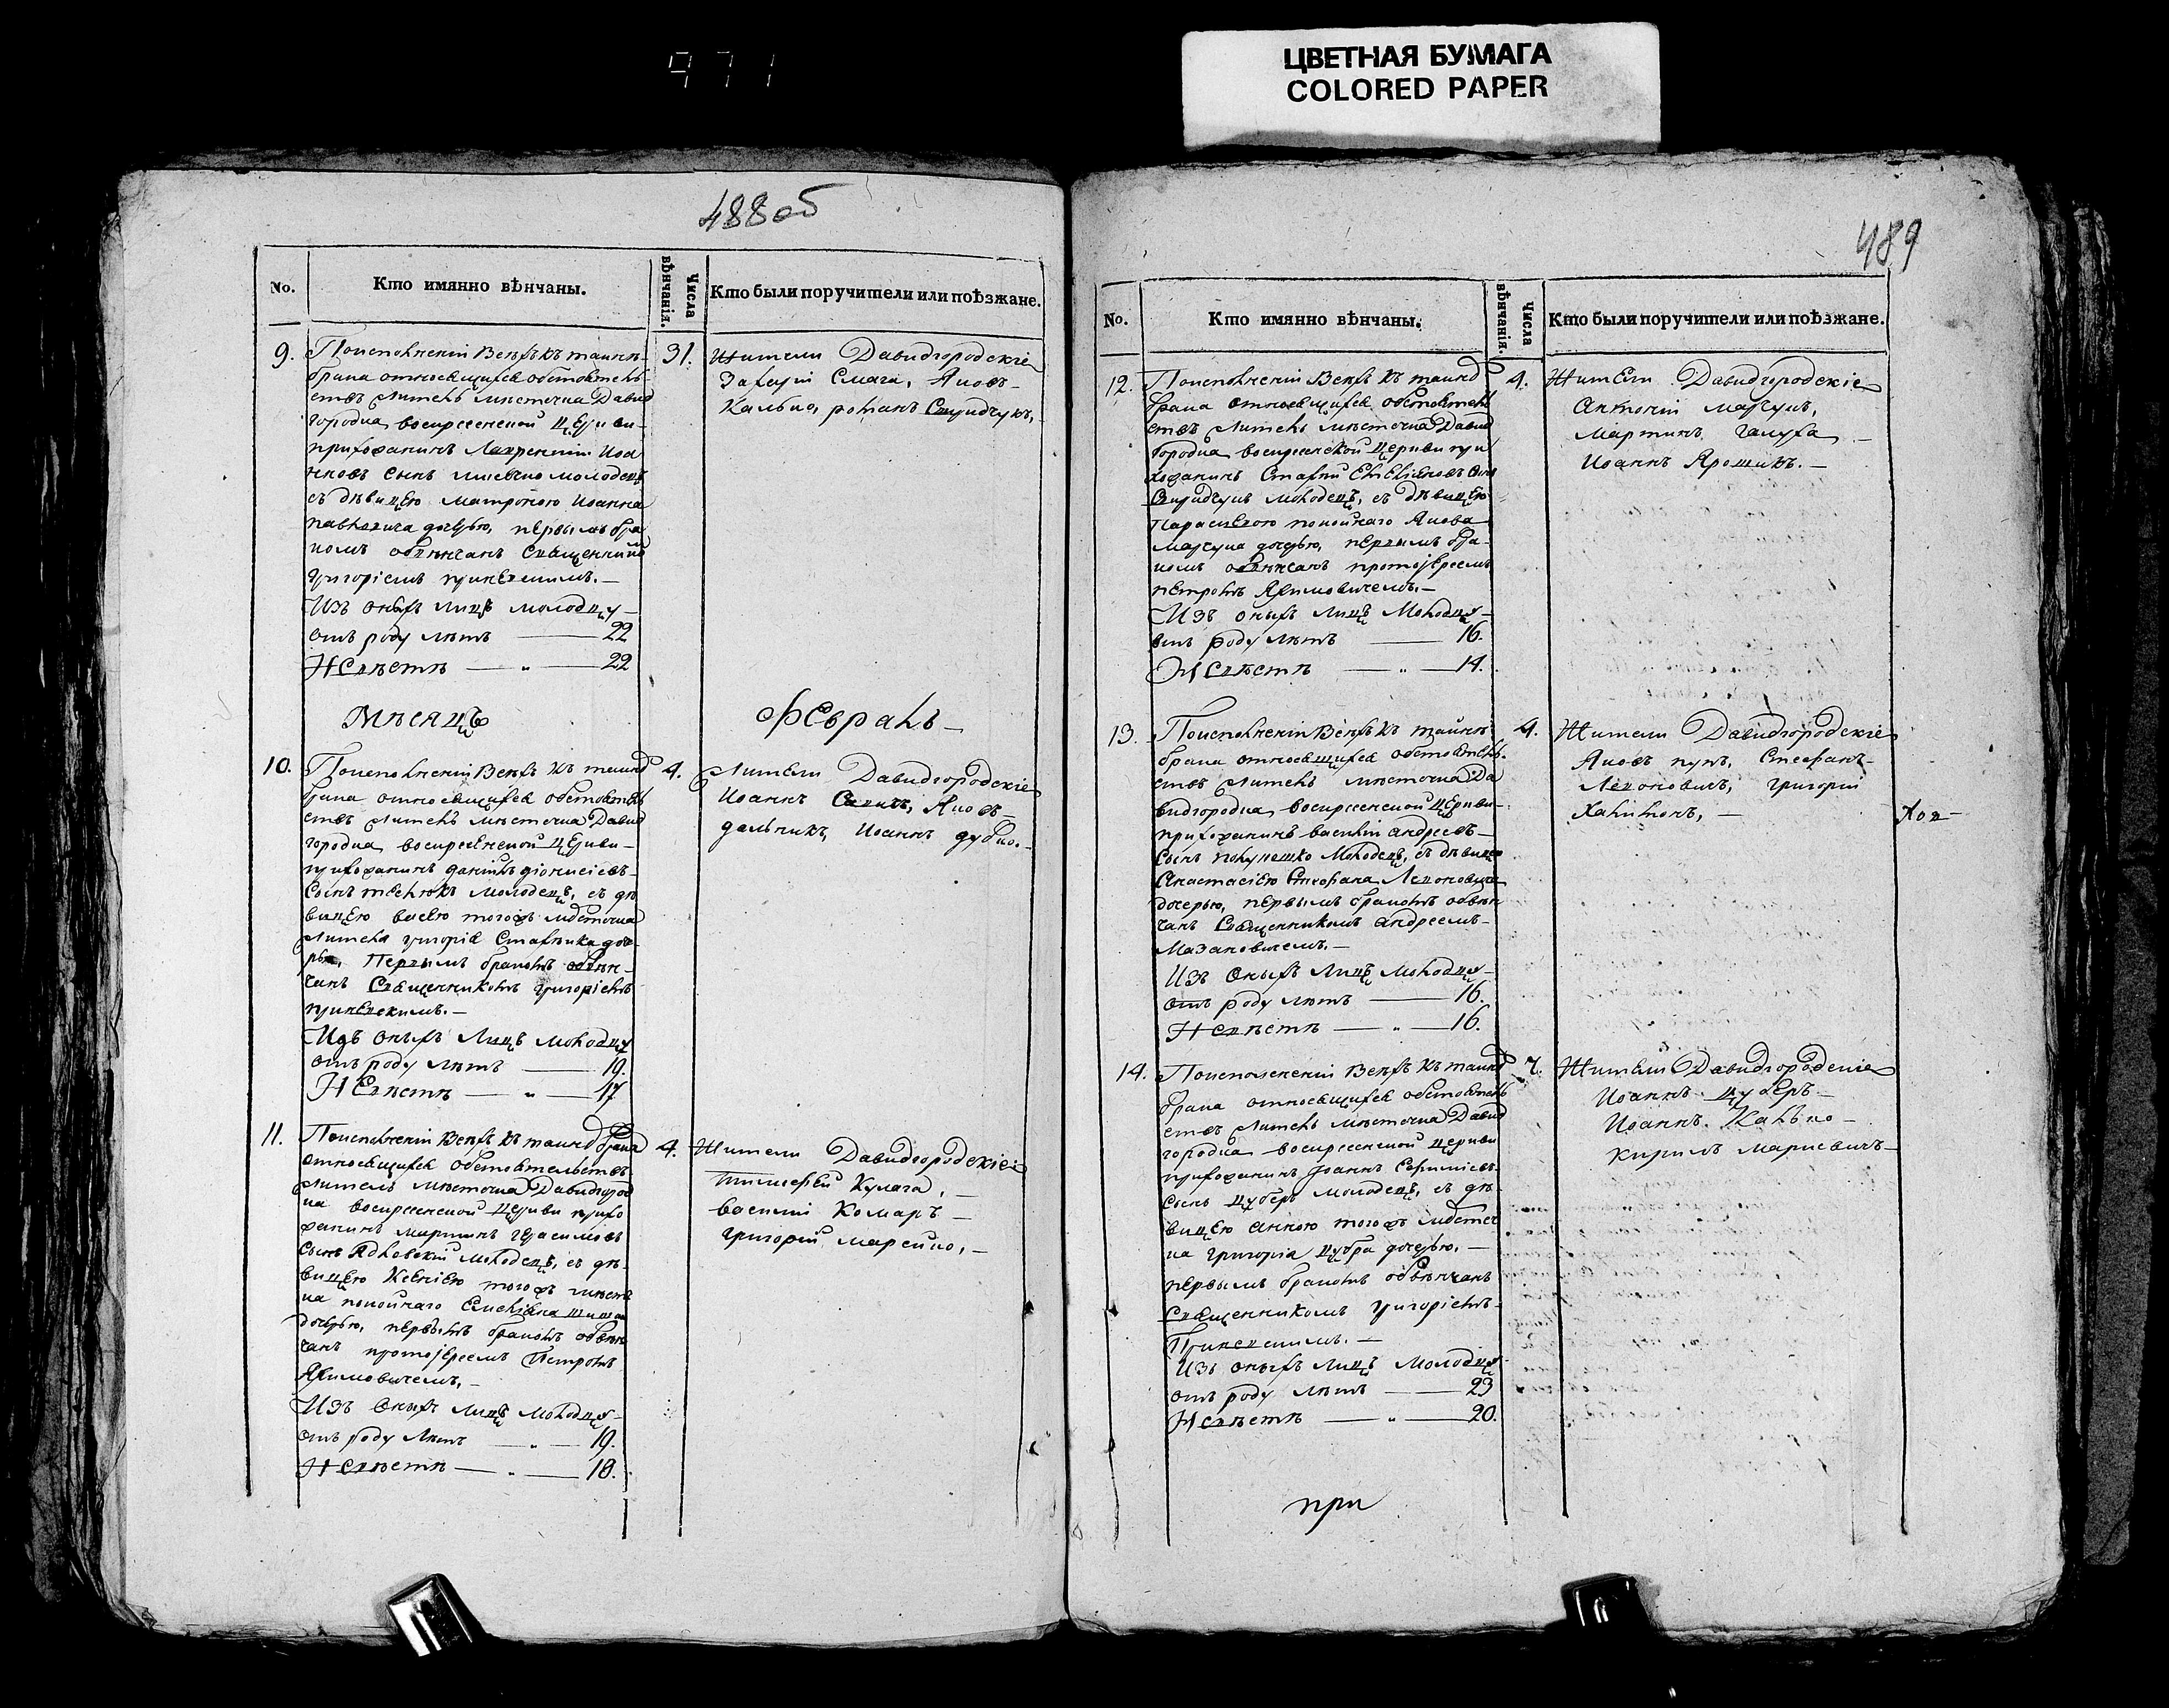 971
ЦВЕТНАЯ БУМАГА
COLORED PAPER
488 об
No.
Кто имянно вѣнчаны.
Числа вѣнчанія.
Кто были поручители или поѣзжане.
9.
По исполненіи всѣхъ къ таинст.
брака относящихся обстоятель-
ствъ житель мѣстечка Давид
городка, воскресенской церкви-
прихожанинъ Лаврентій Иоа
нновъ сынъ молодецъ
съ дѣвицею Матроною Иоанна
дочерью, первымъ бра
комъ обвѣнчанъ Священникомъ
Григоріемъ
Изъ оныхъ лицъ молодцу-
отъ роду лѣтъ — 22
Невѣстѣ — „ — 22
31.
Жители Давидгородскіе
Захарій Смага, Яковъ-
Калько, романъ
Мѣсяцъ
Февраль-
10.
По исполненіи всѣхъ къ таинст
брака относящихся обстоятель
ствъ житель мѣстечка Давид
городка, воскресенской церкви-
прихожанинъ даніилъ діонисіевъ-
сынъ молодецъ, съ дѣ
вицею тогожъ мѣстечка
жителя григорія доче-
рью, Первымъ бракомъ обвѣн-
чанъ Священникомъ григоріемъ

Изъ оныхъ лицъ молодцу
отъ роду лѣтъ — 19.
Невѣстѣ — „ — 17
4.
Жители Давидгородскіе
Иоаннъ Яковъ-
дальникъ, Иоаннъ дубко.-
11.
По исполненіи всѣхъ къ таинст брака
относящихся обстоятельствъ
житель мѣстечка Давидгород
ка воскресенской церкви прихо
жанинъ мартинъ герасимовъ
сынъ молодецъ, съ дѣ-
вицею Ксеніею тогожъ мѣстеч
ка покойнаго
дочерью, первымъ бракомъ обвѣн
чанъ протоіереемъ Петромъ
Якимовичемъ.-
Изъ оныхъ лицъ молодцу-
отъ роду лѣтъ — „ — 19.
Невѣстѣ — „ — 18.
4.
Жители Давидгородскіе
Тимофей Кулага, -
василій Комаръ -
григорій марейко, -
489
No.
Кто имянно вѣнчаны.
Числа вѣнчанія.
Кто были поручители или поѣзжане.
12.
По исполненіи всѣхъ къ таинст
брака относящихся обстоятель
ствъ житель мѣстечка Давид
городка воскресенской церкви при
хожанинъ сынъ
молодецъ, съ дѣвицею
Параскевою покойнаго Якова
дочерью, первымъ бра-
комъ обвѣнчанъ протоіереемъ
петромъ Якимовичемъ.-
Изъ оныхъ лицъ молодцу-
отъ роду лѣтъ — 16.
Невѣстѣ — „ — 14.
4.
Жители Давидгородскіе
Антоній
Мартинъ галуха -
Иоаннъ Ярошикъ. -
13.
По исполненіи всѣхъ къ таинст.
брака относящихся обстоятель-
ствъ житель мѣстечка Да
видгородка, воскресенской церкви-
прихожанинъ василій андреевъ-
сынъ молодецъ, съ дѣвицею
Анастасіею Стефана
дочерью, первымъ бракомъ обвѣн
чанъ Священникомъ андреемъ-
Мазановичемъ. -
Изъ оныхъ лицъ молодцу-
отъ роду лѣтъ — 16.
Невѣстѣ — „ — 16.
4.
Жители Давидгородскіе
Яковъ Стефанъ-
григорій
-
14.
По исполненіи всѣхъ къ таинст
брака относящихся обстоятель
ствъ житель мѣстечка Давид
городка воскресенской церкви
прихожанинъ Іоаннъ
сынъ цуберъ молодецъ, съ дѣ-
вицею анною тогожъ мѣстеч
ка григорія цубра дочерью. -
первымъ бракомъ обвѣнчанъ
Священникомъ григоріемъ-

Изъ оныхъ лицъ молодцу-
отъ роду лѣтъ — 23
Невѣстѣ — „ — 20.
7.
Жители Давидгородскіе
Иоаннъ цуберъ -
Иоаннъ Калько -
кирилъ маркевичъ-
при